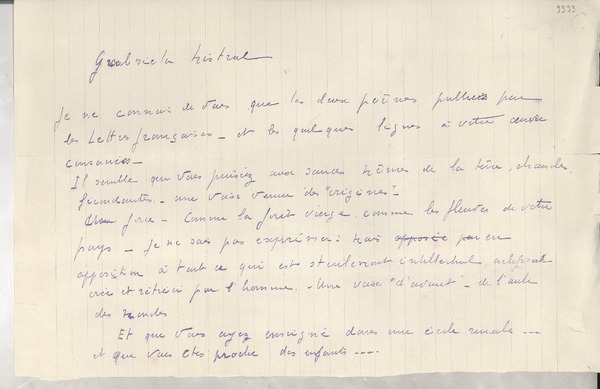 9393
Gabriela Mistral
Je ne connais de vous que les deux poèmes publiés par
les Lettres françaises - et les quelques lignes à votre œuvre
consacrées -
Il semble que vous puisiez aux sources mêmes de la terre, chaudes,
fécondantes - une voix venue des "origines" -
Une force - comme la forêt vierge, comme les fleuves de votre
pays - Je ne sais pas m'exprimer: mais opposée par en
opposition à tout ce qui est seulement intellectuel, artificiel
crée et rétréci par l'homme. Une voix "d'avant" - de l'aube
des mondes
Et que vous ayez enseigné dans une école rurale ---
et que vous êtes proche des enfants ----